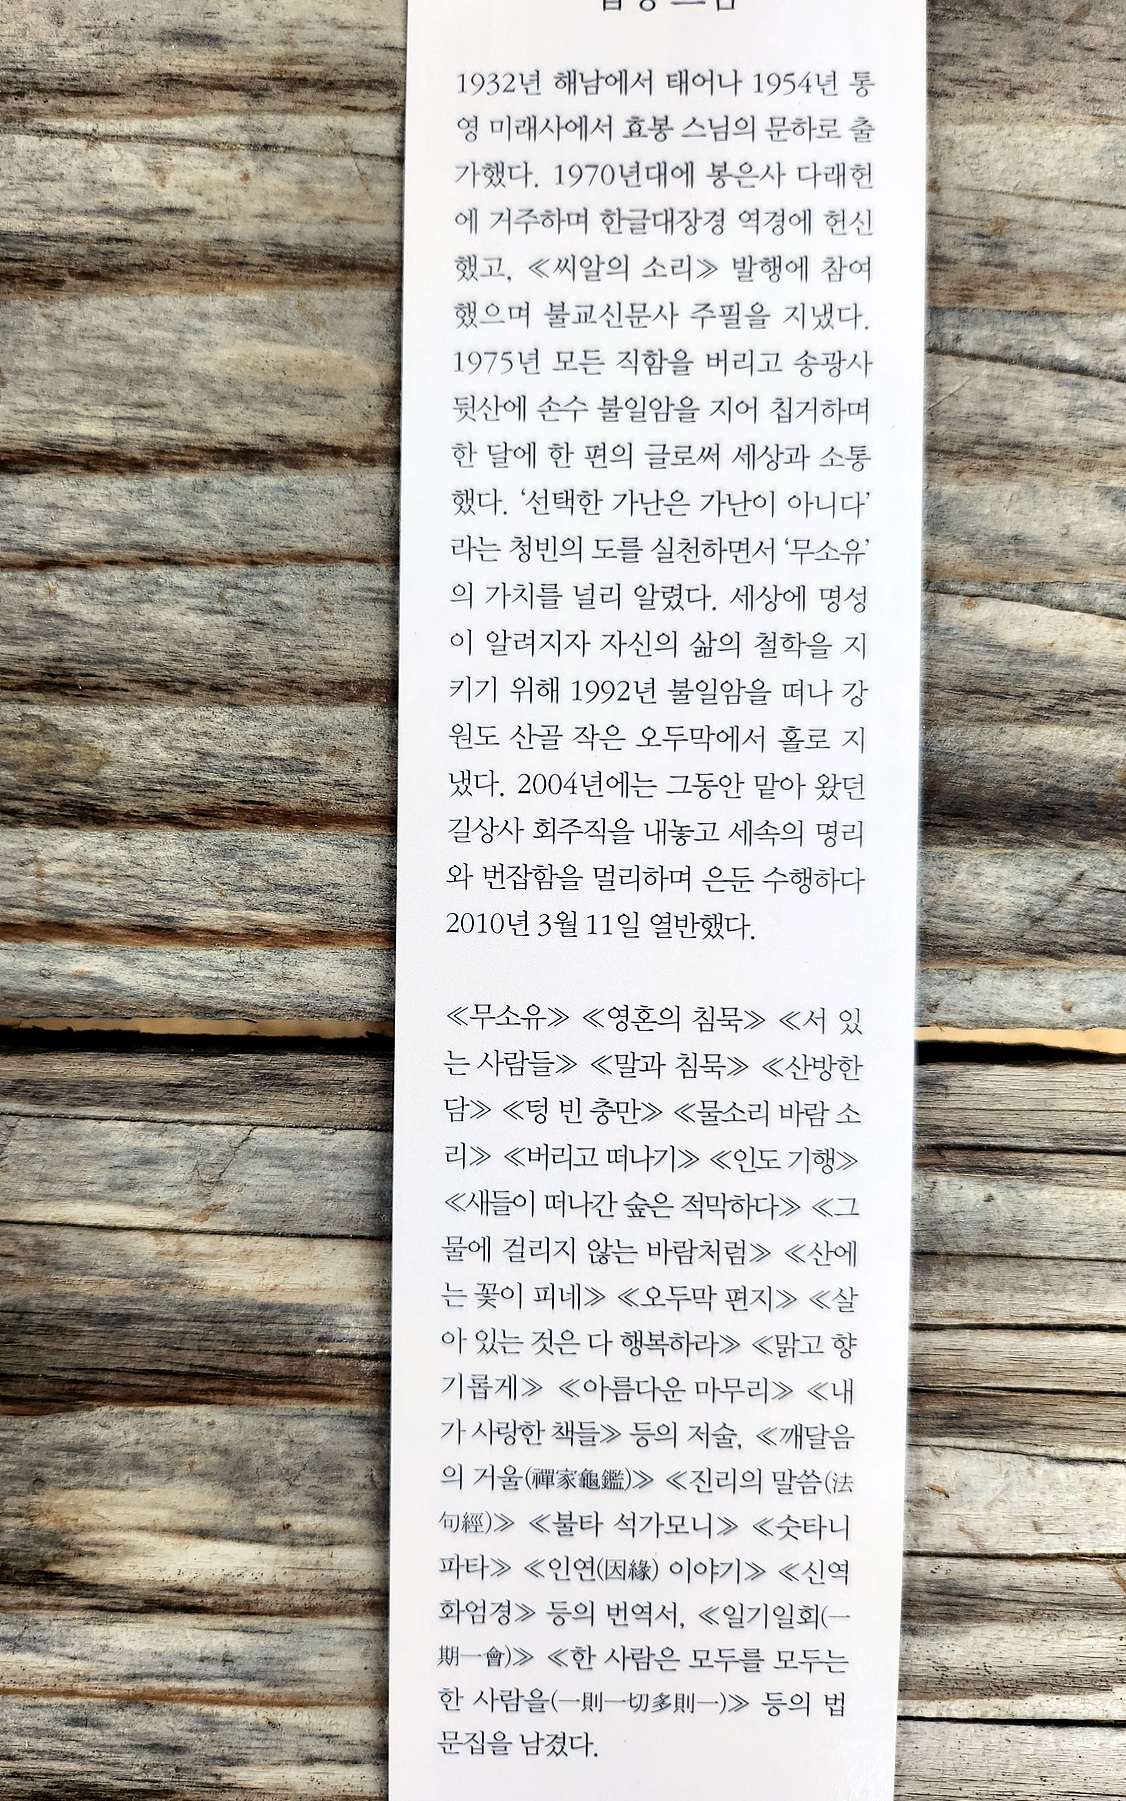 1932년 해남에서 태어나 1954년 통
영 미래사에서 효봉 스님의 문하로 출
가했다. 1970년대에 봉은사 다래헌
에 거주하며 한글대장경 역경에 헌신
했고, ≪씨알의 소리≫ 발행에 참여
했으며 불교신문사 주필을 지냈다.
1975년 모든 직함을 버리고 송광사
뒷산에 손수 불일암을 지어 칩거하며
한 달에 한 편의 글로써 세상과 소통
했다. ‘선택한 가난은 가난이 아니다’
라는 청빈의 도를 실천하면서 ‘무소유’
의 가치를 널리 알렸다. 세상에 명성
이 알려지자 자신의 삶의 철학을 지
키기 위해 1992년 불일암을 떠나 강
원도 산골 작은 오두막에서 홀로 지
냈다. 2004년에는 그동안 맡아 왔던
길상사 회주직을 내놓고 세속의 명리
와 번잡함을 멀리하며 은둔 수행하다
2010년 3월 11일 열반했다.
≪무소유≫ ≪영혼의 침묵≫ ≪서 있
는 사람들≫ ≪말과 침묵≫ ≪산방한
담≫ ≪텅 빈 충만≫ ≪물소리 바람 소
리≫ ≪버리고 떠나기≫ ≪인도 기행≫
≪새들이 떠나간 숲은 적막하다≫ ≪그
물에 걸리지 않는 바람처럼≫ ≪산에
는 꽃이 피네≫ ≪오두막 편지≫ ≪살
아 있는 것은 다 행복하라≫ ≪맑고 향
기롭게≫ ≪아름다운 마무리≫ ≪내
가 사랑한 책들≫ 등의 저술, ≪깨달음
의 거울(禪家龜鑑)≫ ≪진리의 말씀(法
句經)≫ ≪불타 석가모니≫ ≪숫타니
파타≫ ≪인연(因緣) 이야기≫ ≪신역
화엄경≫ 등의 번역서, ≪일기일회(一
期一會)≫ ≪한 사람은 모두를 모두는
한 사람을(一則一切多則一)≫ 등의 법
문집을 남겼다.